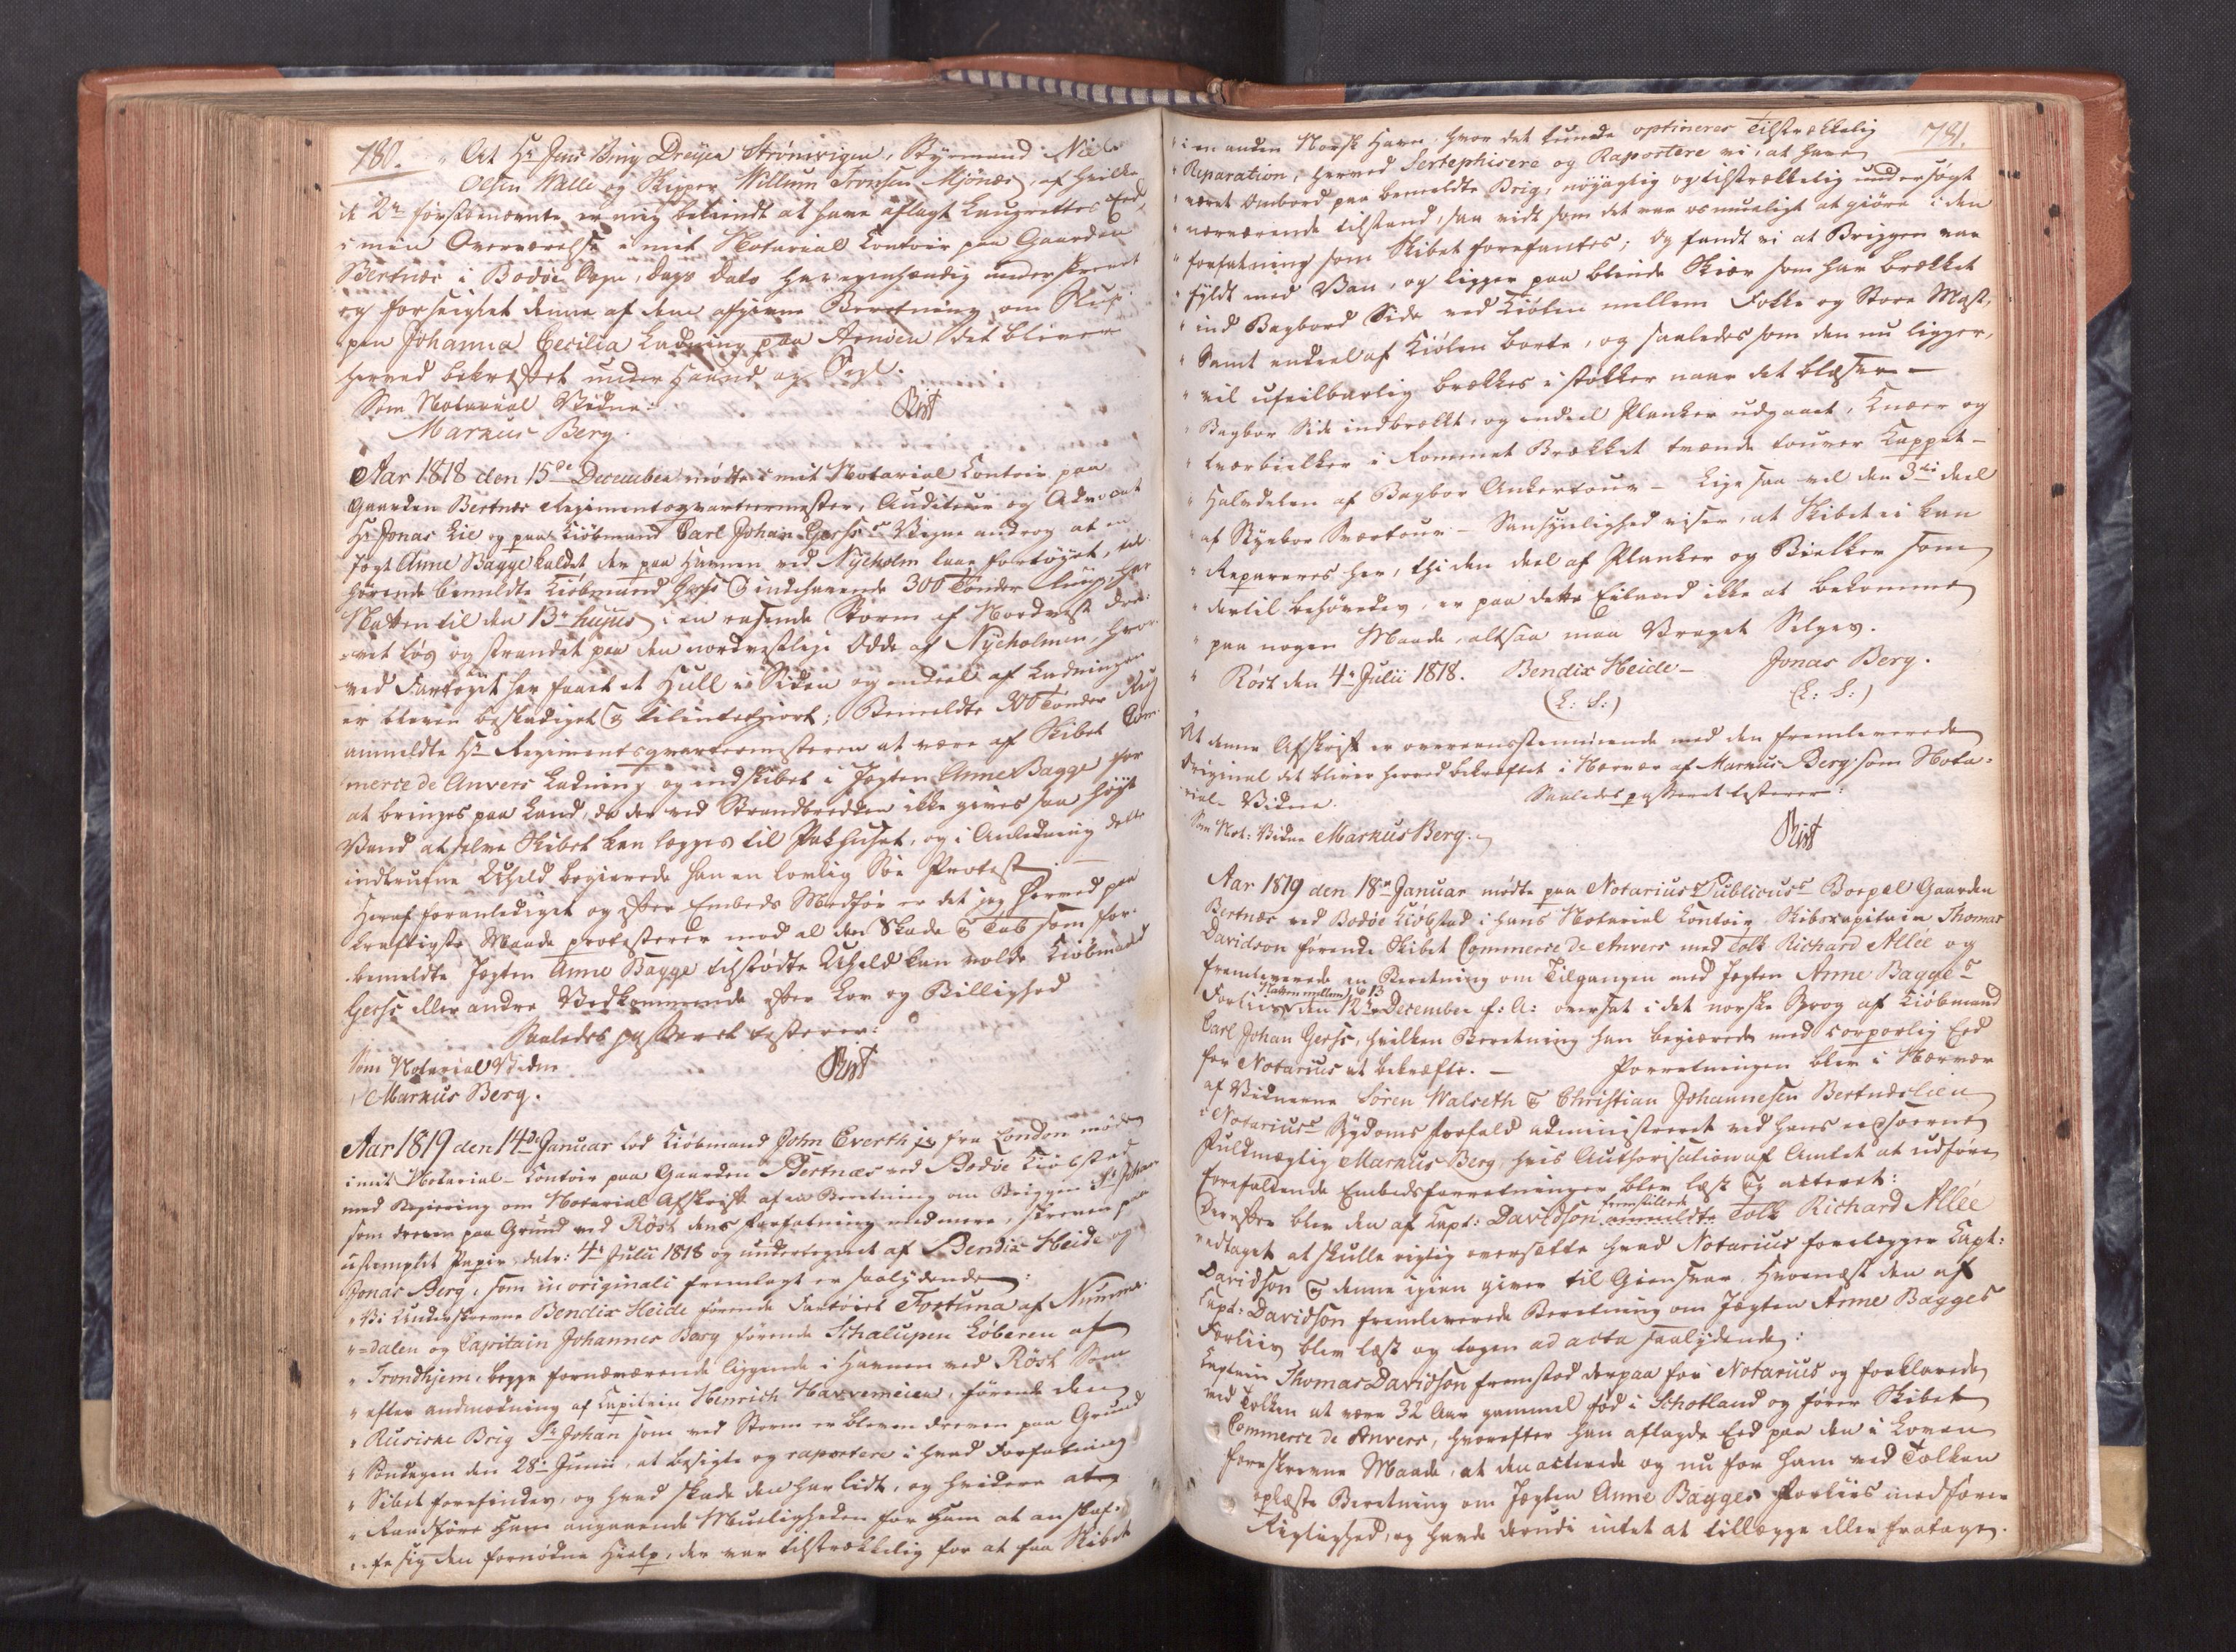 780.
" At Hr Jens Bing Dreyer Strømvigen, Styrmand Niels
Olsen Walle og Skipper Willum Tronsen Mjønes, af hvilke
de 2de førstnævnte er mig bekiendt at have aflagt Laugrettes Eed,
i min Overværelse i mit Notarial Contoir paa Gaarden
Bertnæs i Bodøe Sogn, Dags Dato har egenhændig underskrevet
og forseiglet denne af dem afgivne Beretning om Slup-
pen Johanna Cecilia Ladning paa Arnøen det bliver
herved bekræftet under Haand og Segl.
Som Notarial Vidne: Rist
Markus Berg.
Aar 1818 den 15de December mødte i mit Notarial Contoir paa
Gaarden Bertnæs Regimentsqvarteermester, Auditeur og Advocat
Hr Jonas Lie og paa Kiøbmand Carl Johan Gerss's Vegne androg at en
Jægt Anne Bagge kaldet der paa Havnen ved Nyeholm laae fortøyet, til-
hørende bemeldte Kiøbmand Gerss & indehavende 300 Tønder Rug, har
Natten til den 13de hujus i en rasende Storm af Nordvest dre-
vet løs og strandet paa den nordvestlige Odde af Nyeholmen, hvor-
ved Fartøyet har faaet et Hull i Siden og endeel af Ladningen
er bleven beskadiget & tilintetgiort; Bemeldte 300 Tønder Rug
anmeldte Hr Regimentsqvarteermesteren at være af Skibet Com-
merce de Anvers Ladning og indskibet i Jægten Anne Bagge for
at bringes paa Land, da der ved Strandbredden ikke gives saa høyt
Vand at selve Skibet kan lægges til Pakhuset, og i Anledning dette
indtrufne Uheld begierede han en lovlig Søe Protest
Heraf foranlediget og efter Embeds Medfør er det jeg herved paa
kraftigste Maade protesterer mod al den Skade & Tab som for-
bemeldte Jægten Anne Bagge tilstødte Uheld kan volde Kiøbmand
Gerss eller andre Vedkommende efter Lov og Billighed
Saaledes passeret testerer:
Som Notarial Vidne Rist
Markus Berg.
Aar 1819 den 14de Januar lod Kiøbmand John Everth jr fra London møde
i mit Notarial-Contoir paa Gaarden Bertnæs ved Bodøe Kiøbstad
med Begiering om Notarial Afskrift af en Beretning om Briggen St Johan
som dreven paa Grund ved Røst dens Forfatning med mere, skreven paa
ustemplet Papir datr: 4de Julii 1818 og undertegnet af Bendix Heide og
Jonas Berg, som in originali fremlagt er saalydende:
" Vi Underskrevne Bendix Heide førende Fartøiet Fortuna af Numme-
"=dalen og Capitain Johannes Berg førende Schalupen Løberen af
" Trondhjem, begge fornærværende liggende i Havnen ved Røst Som
" efter anmodning af Capitain Henrich Havvemeien, førende den
" Rusiske Brig St Johan som ved Storm er bleven dreven paa Grund
" Søndagen den 28de Junii, at besigte og raportere i hvad Forfatning
" Sibet forefindes, og hvad skade den har lidt, og hvidere at
" Raadføre ham angaaende Mueligheden for ham at anskaf-
"=fe sig den fornødne Hielp, der var tilstrækkelig for at faa Skibet
781.
" i en anden Norsk Havn, hvor det kunde optineres Tilstrækkelig
" Reparation; herved Sertephisere og Raportere vi, at have
" været Ombord paa bemeldte Brig, nøyagtig og tilstrækkelig undersøgt
" nærværende tilstand, saa vidt som det var os mueligt at giøre i den
" forfatning som Skibet forefantes; Og fandt vi at Briggen var
" fyldt med Van, og ligger paa blinde Skiær som har brækket
" ind Bagbord Side ved Kiølen mellem Fokke og Store Mast,
" Samt endeel af Kiølen borte, og saaledes som den nu ligger,
" vil ufeilbarlig brækkes i støkker naar det blæser –
" Bagbor Side indbrækt, og endeel Planker udgaaet, Knæer og
" tværbielker i Rommet Brækket tvænde touver Kappet –
" Halvdelen af Bagbor Ankertouv – Lige saa vel den 3die deel
" af Styrbor Sværtouv – Sansynlighed viser, at Skibet ei kan
" Repareres her, thi den deel af Planker og Bielker som
" dertil behøvedes, er paa dette Eiland ikke at bekomme
" paa nogen Maade, altsaa maa Vraget Selges.
" Røst den 4de Julii 1818. Bendix Heide – Jonas Berg.
(L: S:) (L: S:)
At denne Afskrift er overeensstemmende med den fremleverede
Original det bliver herved bekræftet i Nærvær af Markus Berg som Nota-
rial-Vidne. Saaledes passeret testerer:
Som Not: Vidne Markus Berg. Rist
Aar 1819 den 18de Januar mødte paa Notarius Publicus's Boepæl Gaarden
Bertnæs ved Bodøe Kiøbstad i hans Notarial Contoir Skibscapitain Thomas
Davidson førende Skibet Commerce de Anvers med Tolk Richard Allée og
fremleverede en Beretning om Tilgangen med Jægten Anne Bagge's
Natten mellem 13
Forliis den 12te December f: A: oversat i det norske Sprog af Kiøbmand
Carl Johan Gerss, hvilken Beretning han begiærede med corporlig Eed
for Notarius at bekræfte. – Forretningen blev i Nærvær
af Vidnerne Søren Walseth & Christian Johannesen Bertneslien
i Notarius's Sygdoms forfald administreret ved hans eedsvorne
Fuldmægtig Markus Berg, hvis Authorisation af Amtet at udføre
forefaldende Embedsforretninger blev læst & acteret:
fremstillede
Derefter blev den af Capt: Davidson anmeldte Tolk Richard Allée
vedtaget at skulle rigtig oversætte hvad Notarius forelægger Capt:
Davidson & denne igien giver til Giensvar. Hvornæst den af
Capt: Davidson fremleverede Beretning om Jægten Anne Bagges
Forliis blev læst og tagen ad acta saalydende:
Captain Thomas Davidson fremstod derpaa for Notarius og forklarede
ved Tolken at være 32 Aar gammel fød i Schotland og fører Skibet
Commerce de Anvers, hvorefter han aflagde Eed paa den i Loven
foreskrevne Maade, at den acterede og nu for ham ved Tolken
oplæste Beretning om Jægten Anne Bagges Forliis medfører
Rigtighed, og havde derudi intet at tillægge eller fratage.